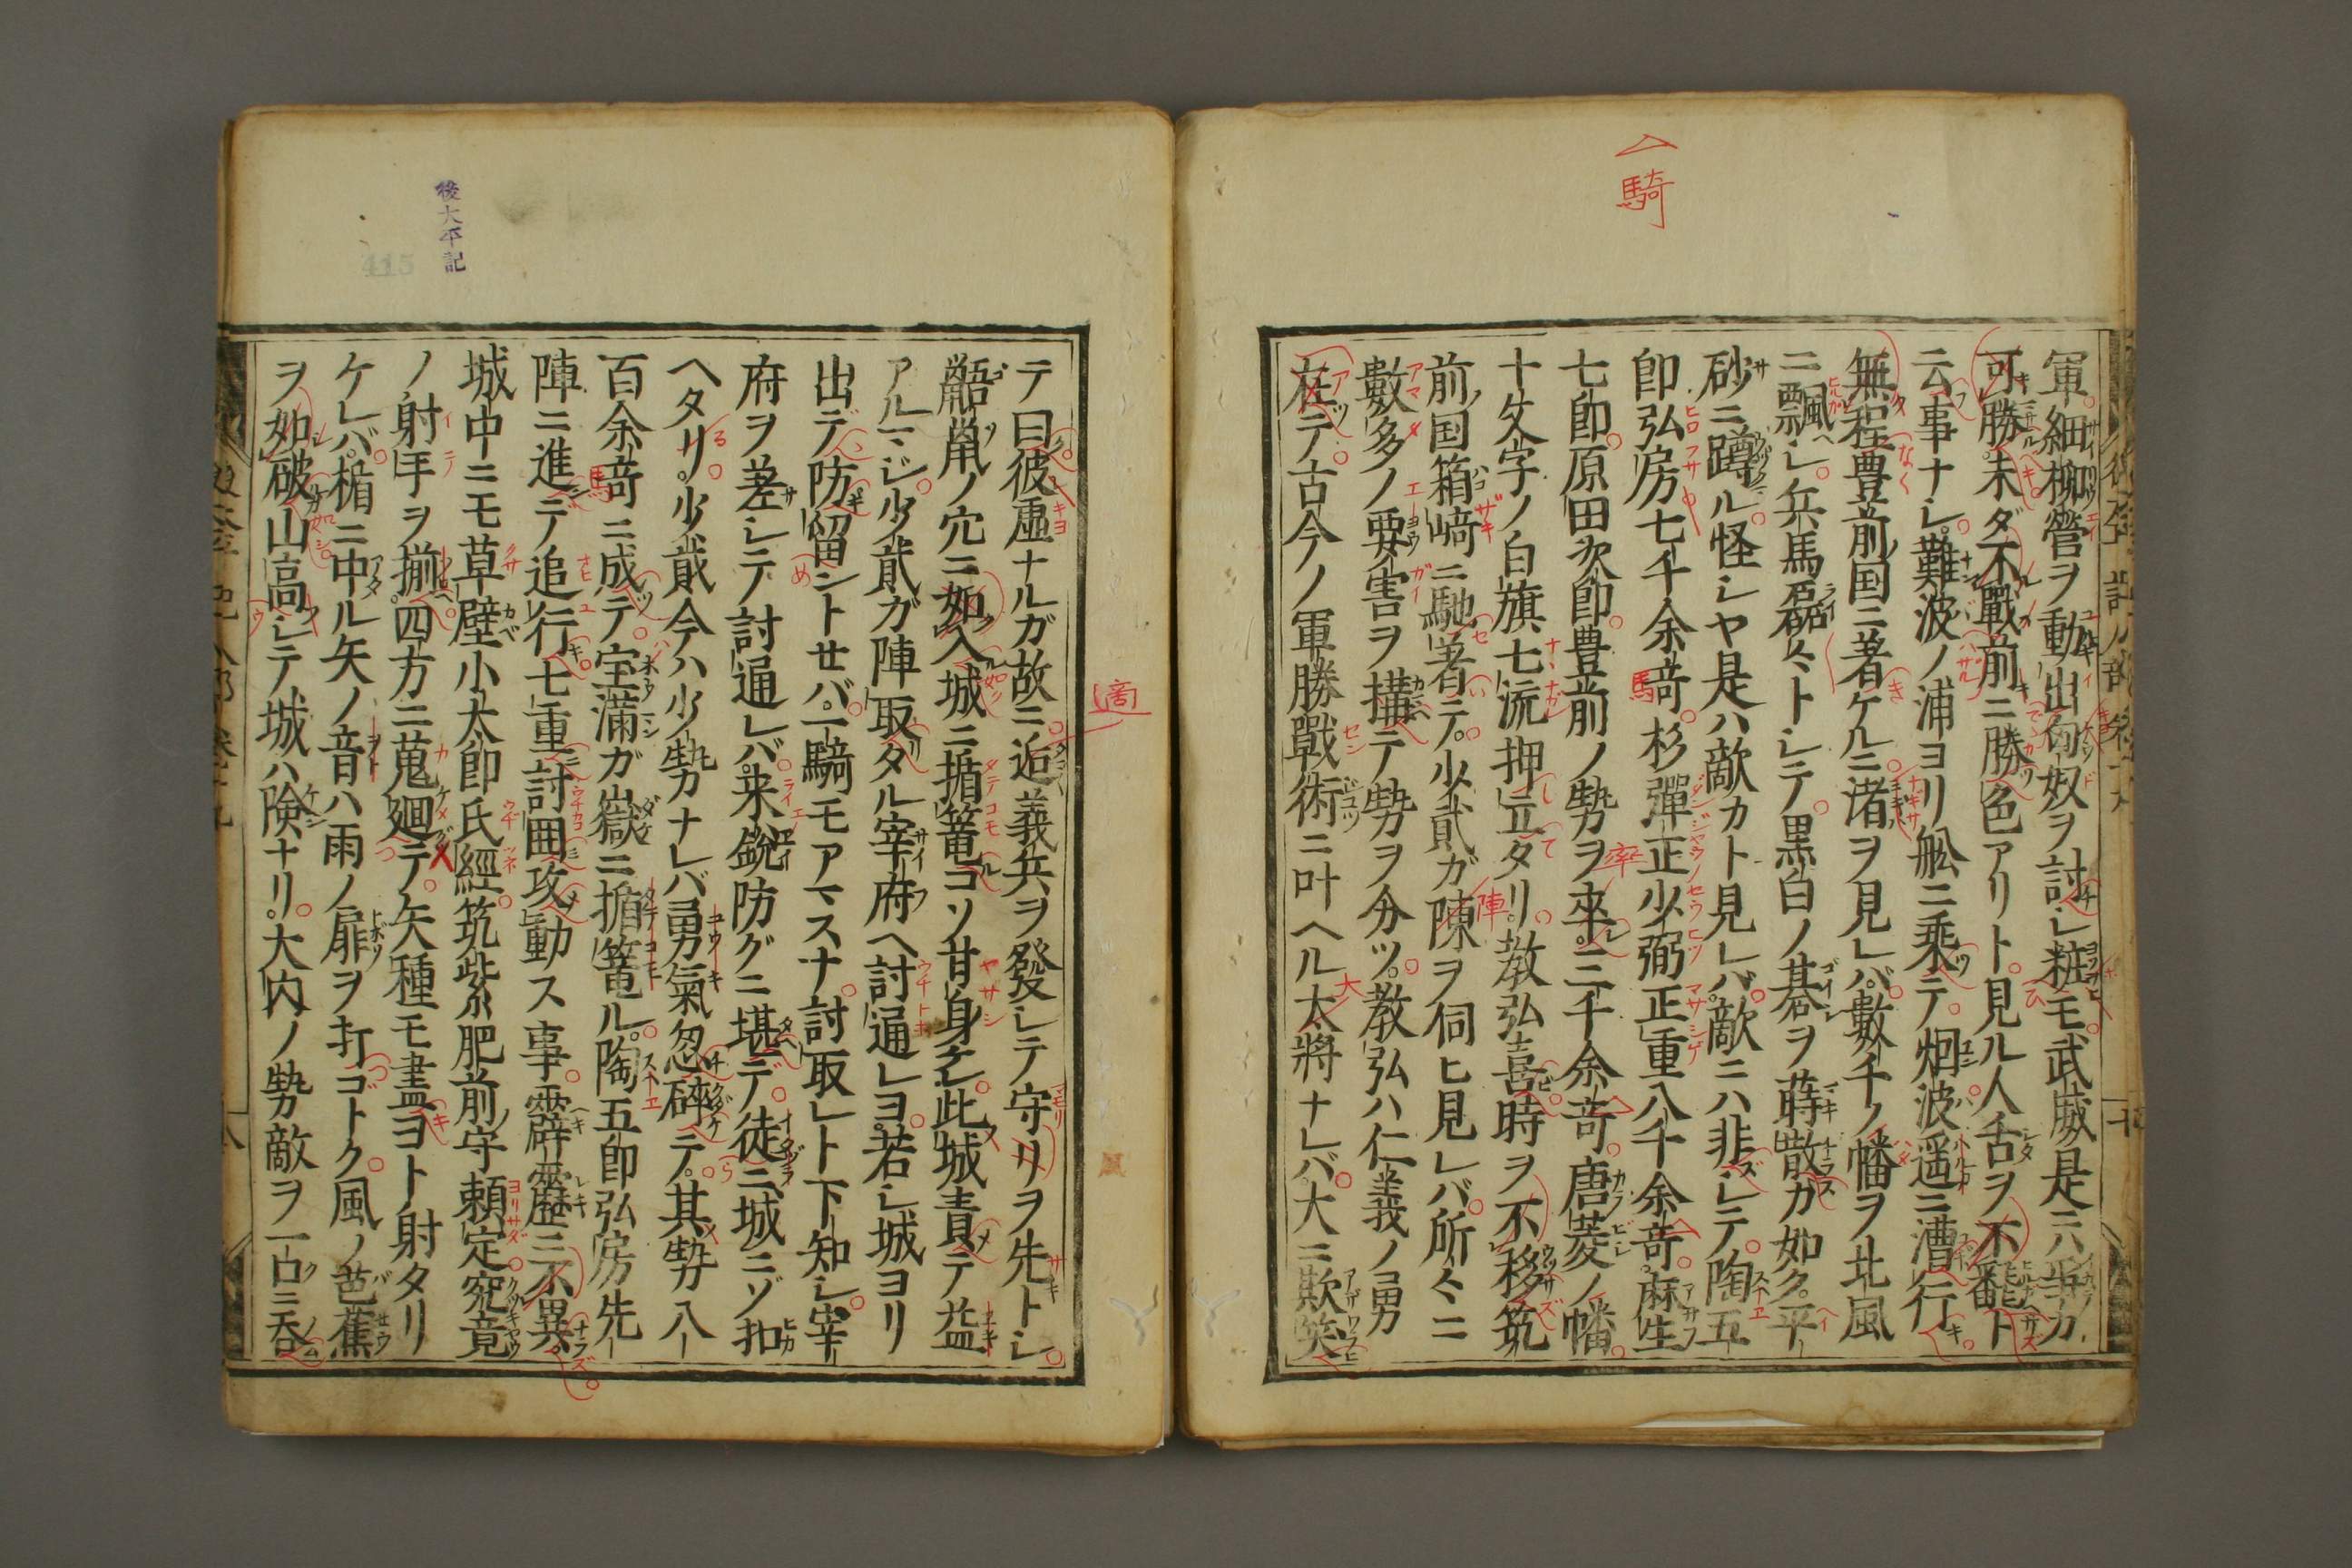 軍細柳營ヲ動出匈奴ヲ討シ粧モ武威是ニハ爭カ
可勝未ダ不戰前ニ勝色アリト見ル人舌ヲ不飜ト
云事ナシ難波ノ浦ヨリ舩ニ乘テ烟波遥ニ漕行
無程豊前国ニ著ケルニ渚ヲ見レバ數千ノ幡ヲ北風
ニ飄シ兵馬磊々トシテ黒白ノ碁ヲ蒔散カ如ク平
砂ニ蹲ル怪シヤ是ハ敵カト見レバ敵ニハ非シテ陶五
郎弘房七千余竒杉彈正少弼正重八千余竒麻生
七郎原田次郎豊前ノ勢ヲ卒三千余竒唐菱ノ幡
十文字ノ白旗七流押立タリ教弘喜時ヲ不移筑
前国箱﨑ニ馳著テ少貳ガ陳ヲ伺ヒ見レバ所々ニ
數多ノ要害ヲ搆テ勢ヲ分ツ教弘ハ仁義ノ勇
在テ古今ノ軍勝戰術ニ叶ヘル太將ナレバ大ニ欺笑
テ曰彼虛ナルガ故ニ逅義兵ヲ發シテ守リヲ先トシ
鼯鼡ノ穴ニ如入城ニ揗篭コソ甘身ケレ此城責テ益
アルマジ少貳ガ陣取タル宰府ヘ討通レヨ若シ城ヨリ
出デ防留ントセバ一騎モアマスナ討取レト下知シ宰
府ヲ差シテ討通レバ来銳防グニ堪デ徒ニ城ニゾ扣
ヘタリ少貳今ハ少勢ナレバ勇氣忽碎テ其勢八
百余竒ニ成テ宝滿ガ嶽ニ揗篭ル陶五郎弘房先
陣ニ進ミテ追行七重討囲攻動ス事霹靂ニ不異
城中ニモ草壁小太郎氏經筑紫肥前守頼定究竟
ノ射手ヲ揃四方ニ蒐廻テ矢種モ盡ヨト射タリ
ケレバ楯ニ中ル矢ノ音ハ雨ノ扉ヲ打ゴトク風ノ芭蕉
ヲ如破山高シテ城ハ険ナリ大内ノ勢敵ヲ一口ニ呑
騎
適
後太平記
415